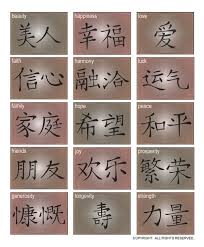 beauty happiness love
美人 幸福 爱
faith harmony luck
信心 融洽 运气
family hope peace
家庭 希望 和平
friends joy prosperity
朋友 欢乐 繁荣
generosity longevity strength
慷慨 壽 力量
COPYRIGHT. ALL RIGHTS RESERVED.